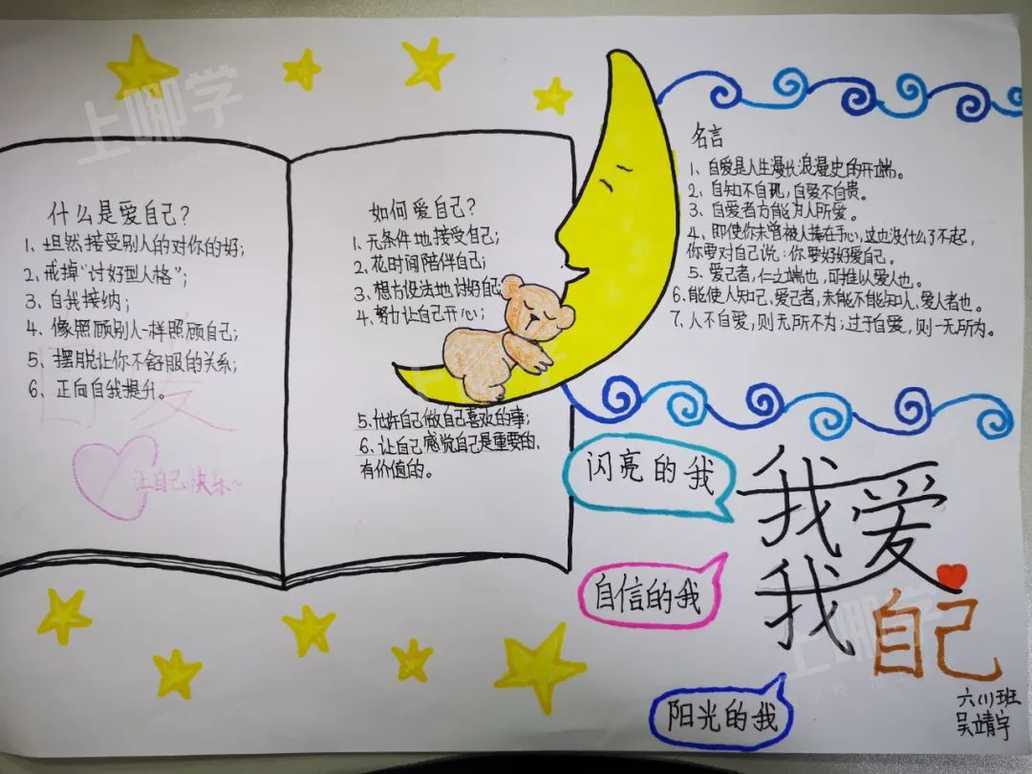 什么是爱自己？
1、坦然接受别人的对你的好；
2、戒掉“讨好型人格”；
3、自我接纳；
4、像照顾别人一样照顾自己；
5、摆脱让你不舒服的关系；
6、正向自我提升。
让自己快乐~
如何爱自己？
1、无条件地接受自己；
2、花时间陪伴自己；
3、想方设法地讨好自己
4、努力让自己开心；
5、允许自己做自己喜欢的事；
6、让自己感觉自己是重要的，
有价值的。
名言
1、自爱是人生漫长浪漫史的开端。
2、自知不自现，自爱不自贵。
3、自爱者方能为人所爱。
4、即使你未曾被人捧在手心，这也没什么了不起，
你要对自己说：你要好好爱自己。
5、爱己者，仁之端也，可推以爱人也。
6、能使人知己、爱己者，未能不能知人、爱人者也。
7、人不自爱，则无所不为；过于自爱，则一无所为。
闪亮的我
自信的我
阳光的我
我爱
我自己
六(1)班
吴靖宇
上哪学
上哪学